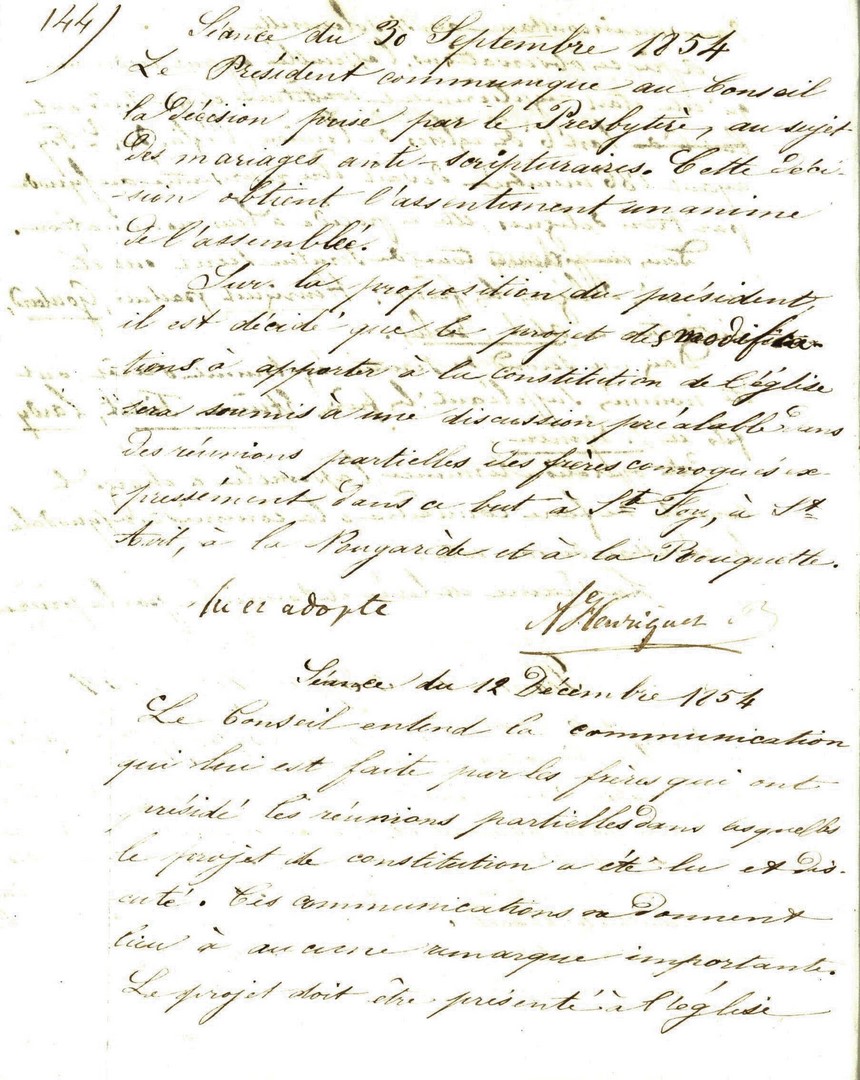 144)
Séance du 30 Septembre 1854
Le Président communique au Conseil
la Décision prise par le Presbytère, au sujet
des mariages anti-scripturaires. Cette déci-
sion obtient l'assentiment unanime
de l'assemblée.
Sur la proposition du président,
il est décidé que le projet des modifica-
tions à apporter à la constitution de l'église
sera soumis à une discussion préalable dans
des réunions partielles des frères convoqués ex-
pressément dans ce but à St Foy, à St
à la Nougarède et à la Rouquette.
lu et adopté
Séance du 12 Décembre 1854
Le Conseil entend la communication
qui lui est faite par les frères qui ont
présidé les réunions partielles dans lesquelles
le projet de constitution a été lu et dis-
cuté. Ces communications ne donnent
lieu à aucune remarque importante.
Le projet doit être présenté à l'église